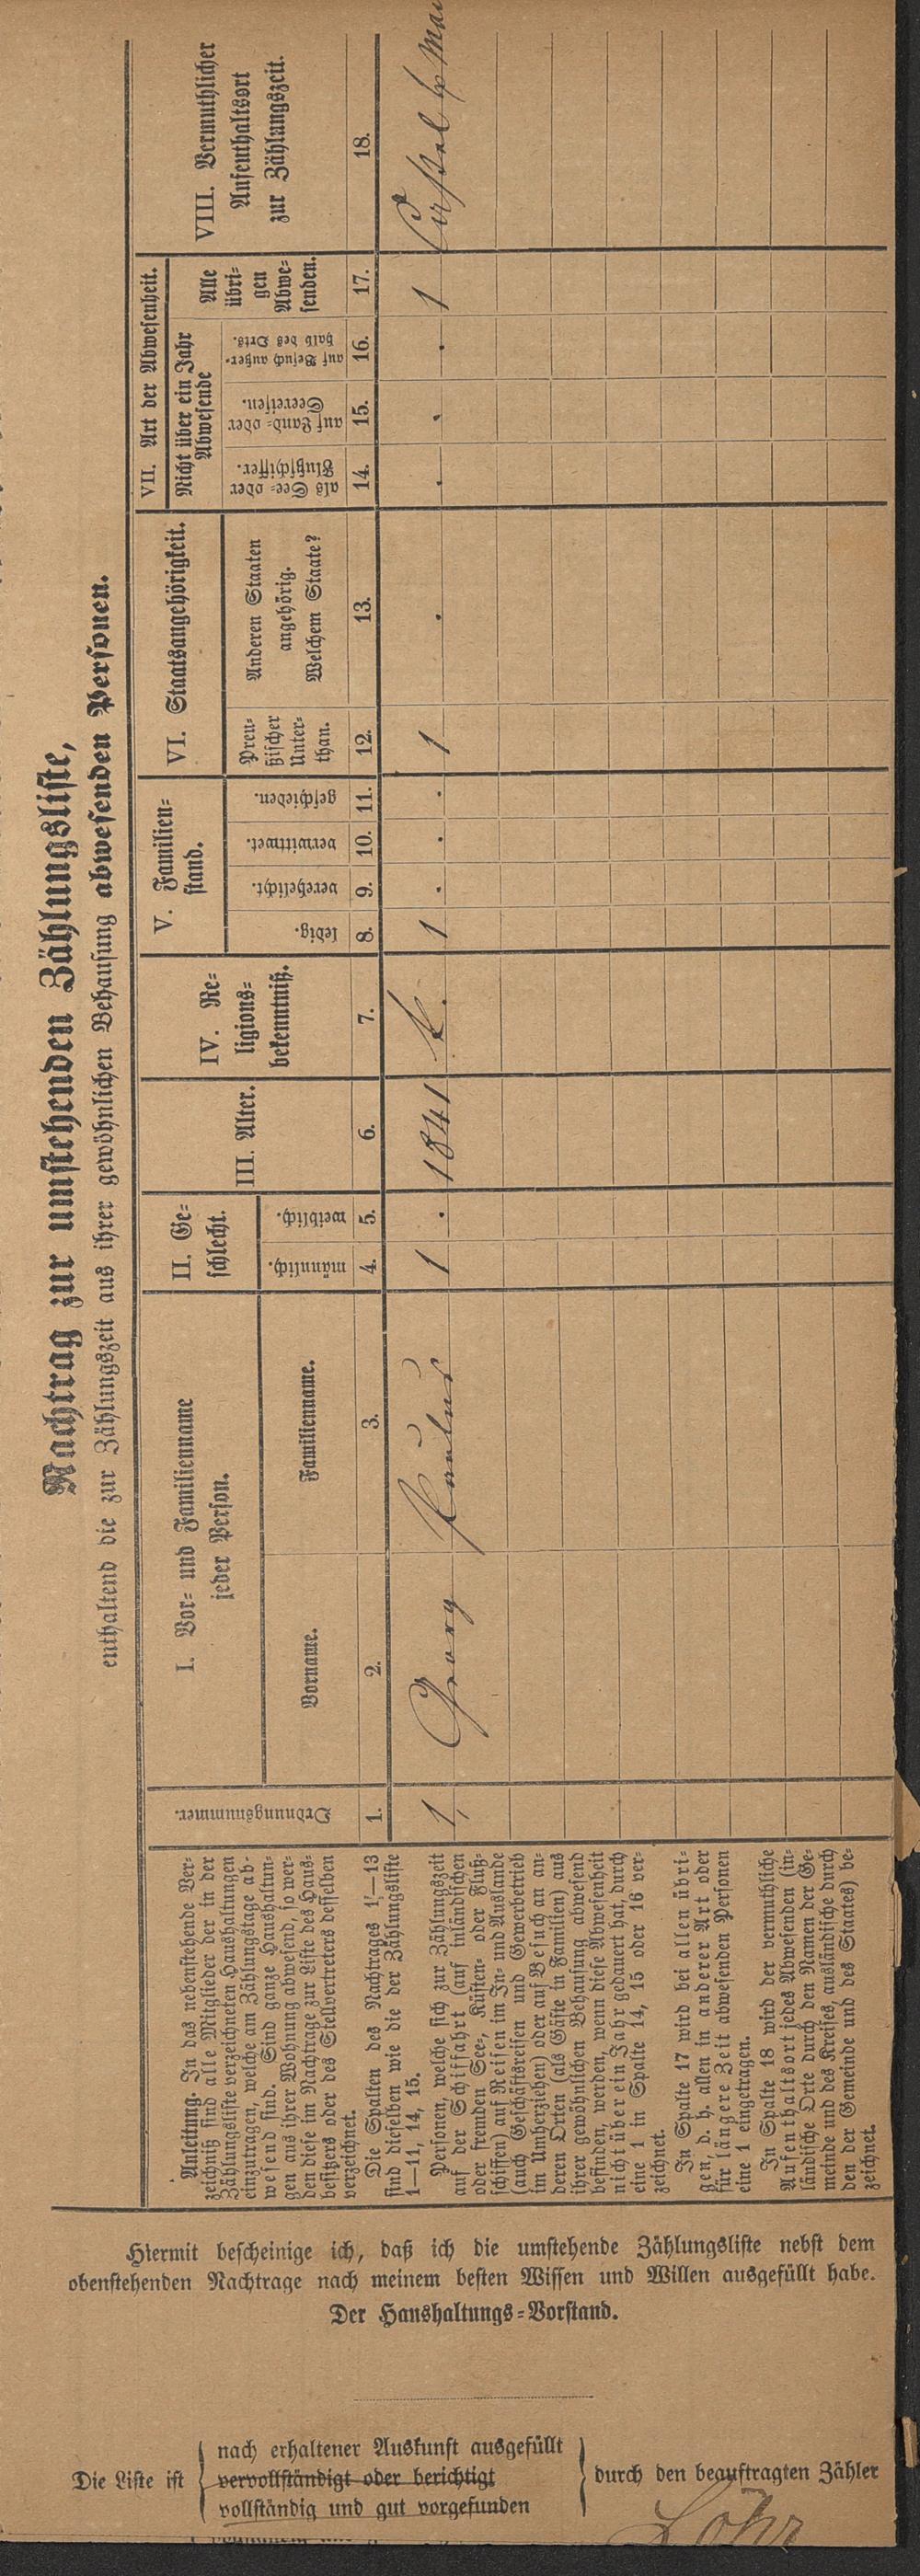 Nachtrag zur umstehenden Zählungsliste,
enthaltend die zur Zählungszeit aus ihrer gewöhnlichen Behausung abwesenden Personen.
Anleitung. In das nebenstehende Ver-
zeichniß sind alle Mitglieder der in der
Zählungsliste verzeichneten Haushaltungen
einzutragen, welche am Zählungstage ab-
wesend sind. Sind ganze Haushaltun-
gen aus ihrer Wohnung abwesend, so wer-
den diese im Nachtrage zur Liste des Haus-
besitzers oder des Stellvertreters desselben
verzeichnet.
Die Spalten des Nachtrages 1—13
sind dieselben wie die der Zählungsliste
1—11, 14, 15.
Personen, welche sich zur Zählungszeit
auf der Schiffahrt (auf inländischen
oder fremden See-, Küsten- oder Fluß-
schiffen) auf Reisen im In- und Auslande
(auch Geschäftsreisen und Gewerbebetrieb
im Umherziehen) oder auf Besuch an an-
deren Orten (als Gäste in Familien) aus
ihrer gewöhnlichen Behausung abwesend
befinden, werden, wenn diese Abwesenheit
nicht über ein Jahr gedauert hat, durch
eine 1 in Spalte 14, 15 oder 16 ver-
zeichnet.
In Spalte 17 wird bei allen übri-
gen, d. h. allen in anderer Art oder
für längere Zeit abwesenden Personen
eine 1 eingetragen.
In Spalte 18 wird der vermuthliche
Aufenthaltsort jedes Abwesenden (in-
ländische Orte durch den Namen der Ge-
meinde und des Kreises, ausländische durch
den der Gemeinde und des Staates) be-
zeichnet.
Ordnungsnummer.
I. Vor- und Familienname
jeder Person.
Vorname.
Familienname.
II. Ge-
schlecht.
männlich.
weiblich.
III. Alter.
IV. Re-
ligions-
bekenntniß.
V. Familien-
stand.
ledig.
verehelicht.
verwittwet.
geschieden.
VI. Staatsangehörigkeit.
Preu-
ßischer
Unter-
than.
Anderen Staaten
angehörig.
Welchem Staate?
VII. Art der Abwesenheit.
Nicht über ein Jahr
Abwesende
als See- oder
Flußschiffer.
auf Land- oder
Seereisen.
auf Besuch außer-
halb des Orts.
Alle
übri-
gen
Abwe-
senden.
VIII. Vermuthlicher
Aufenthaltsort
zur Zählungszeit.
1. 2. 3. 4. 5. 6. 7. 8. 9. 10. 11. 12. 13. 14. 15. 16. 17. 18.
1, Georg Paulus 1 . 1841 k. 1 . . . 1 . . . . 1
Hiermit bescheinige ich, daß ich die umstehende Zählungsliste nebst dem
obenstehenden Nachtrage nach meinem besten Wissen und Willen ausgefüllt habe.
Der Haushaltungs-Vorstand.
nach erhaltener Auskunft ausgefüllt
Die Liste ist vervollständigt oder berichtigt durch den beauftragten Zähler
vollständig und gut vorgefunden
Löhr